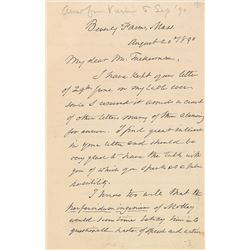 Beverly Farms, Mass.
August 20th 1890
My dear Mr. Tuckerman.
I have kept your letter
of 29th June on my table ever
since I received it among a crowd
of other letters many of them claiming
an answer. I find great interest
in your letter and should be
very glad to have the talk with
you of which you speak as a future
possibility.
I know too well that the
perfervidum ingenium of Motley
would sometimes betray him into
questionable haste of speech and action